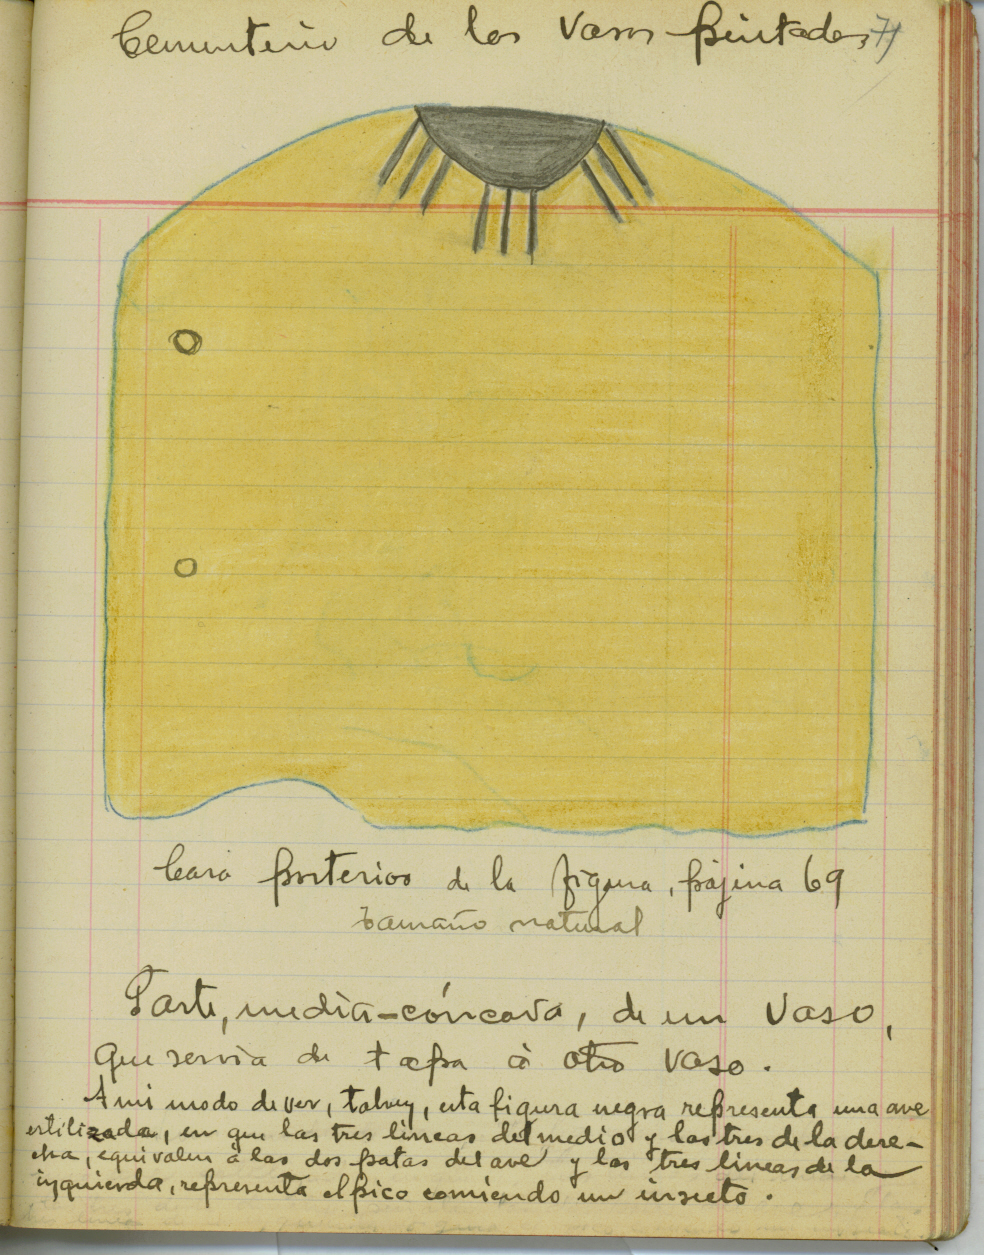 Cementerio de los Vasos pintados, 71
Cara posterior de la figura, página 69
tamaño natural
Parte, media-cóncava, de un vaso,
que servia de tapa à otro vaso.
A mi modo de ver, talvez, esta figura negra representa una ave
estilizada, en que las tres lineas del medio y las tres de la dere-
cha, equivalen á las dos patas del ave y las tres lineas de la
izquierda, representa el pico comiendo un insecto.